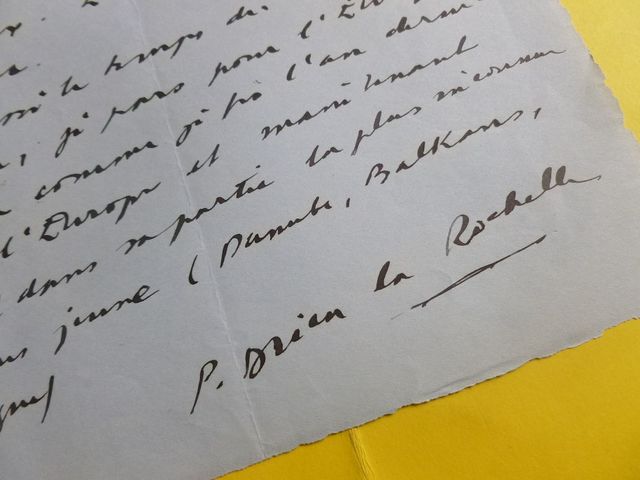 le temps de
, je pars pour l'Europe
comme j'ai l'an dernier
l'Europe et maintenant
dans sa partie la plus inconnue
jeune (Danube, Balkans,
P. Drieu la Rochelle